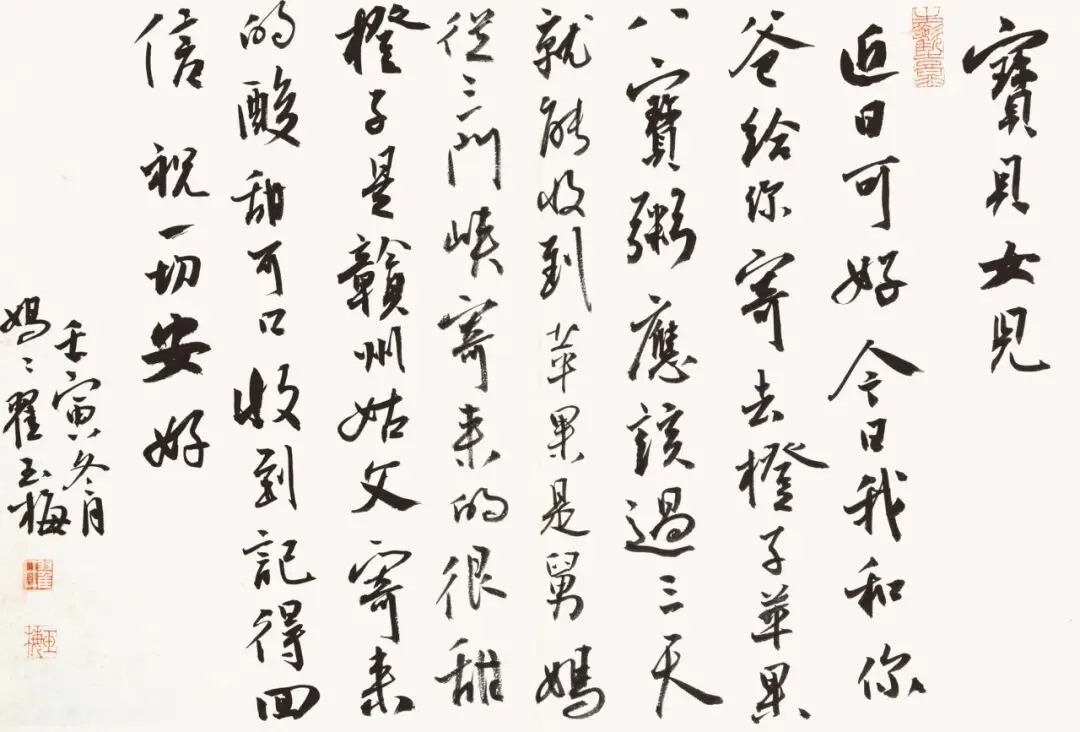 寶貝女兒
近日可好今日我和你
爸給你寄去橙子苹果
八寶粥應該過三天
就能收到苹果是舅媽
從三門峽寄来的很甜
橙子是贛州姑父寄来
的酸甜可口收到記得回
信祝一切安好
壬寅冬月
媽〻瞿玉梅